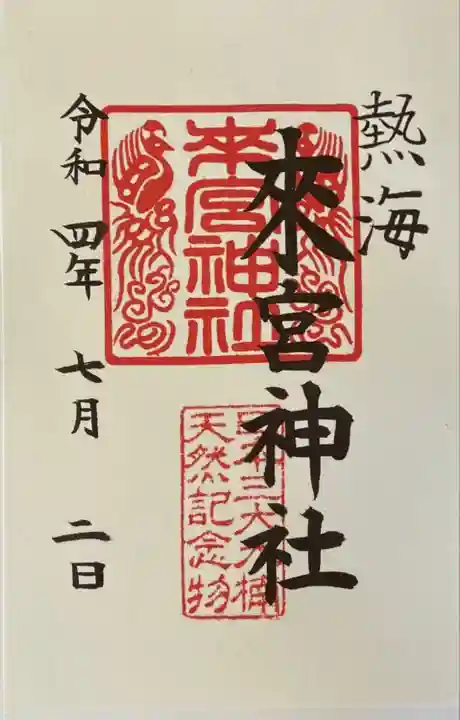 熱海
來宮神社
令和四年七月二日
來宮神社
日本三大大楠
天然記念物